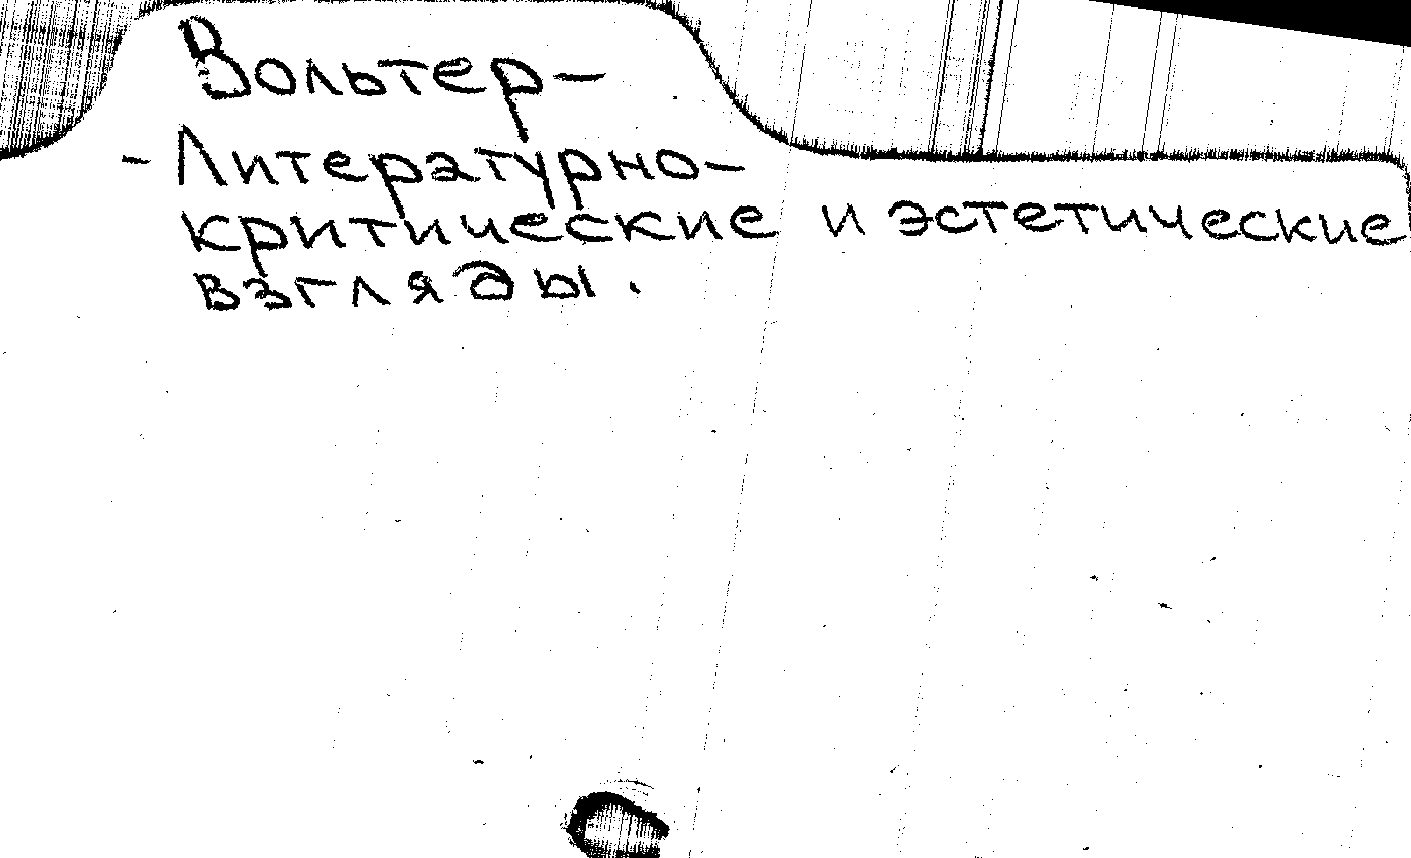 Вольтер-
-Литературно-
критические и эстетические
взгляды.